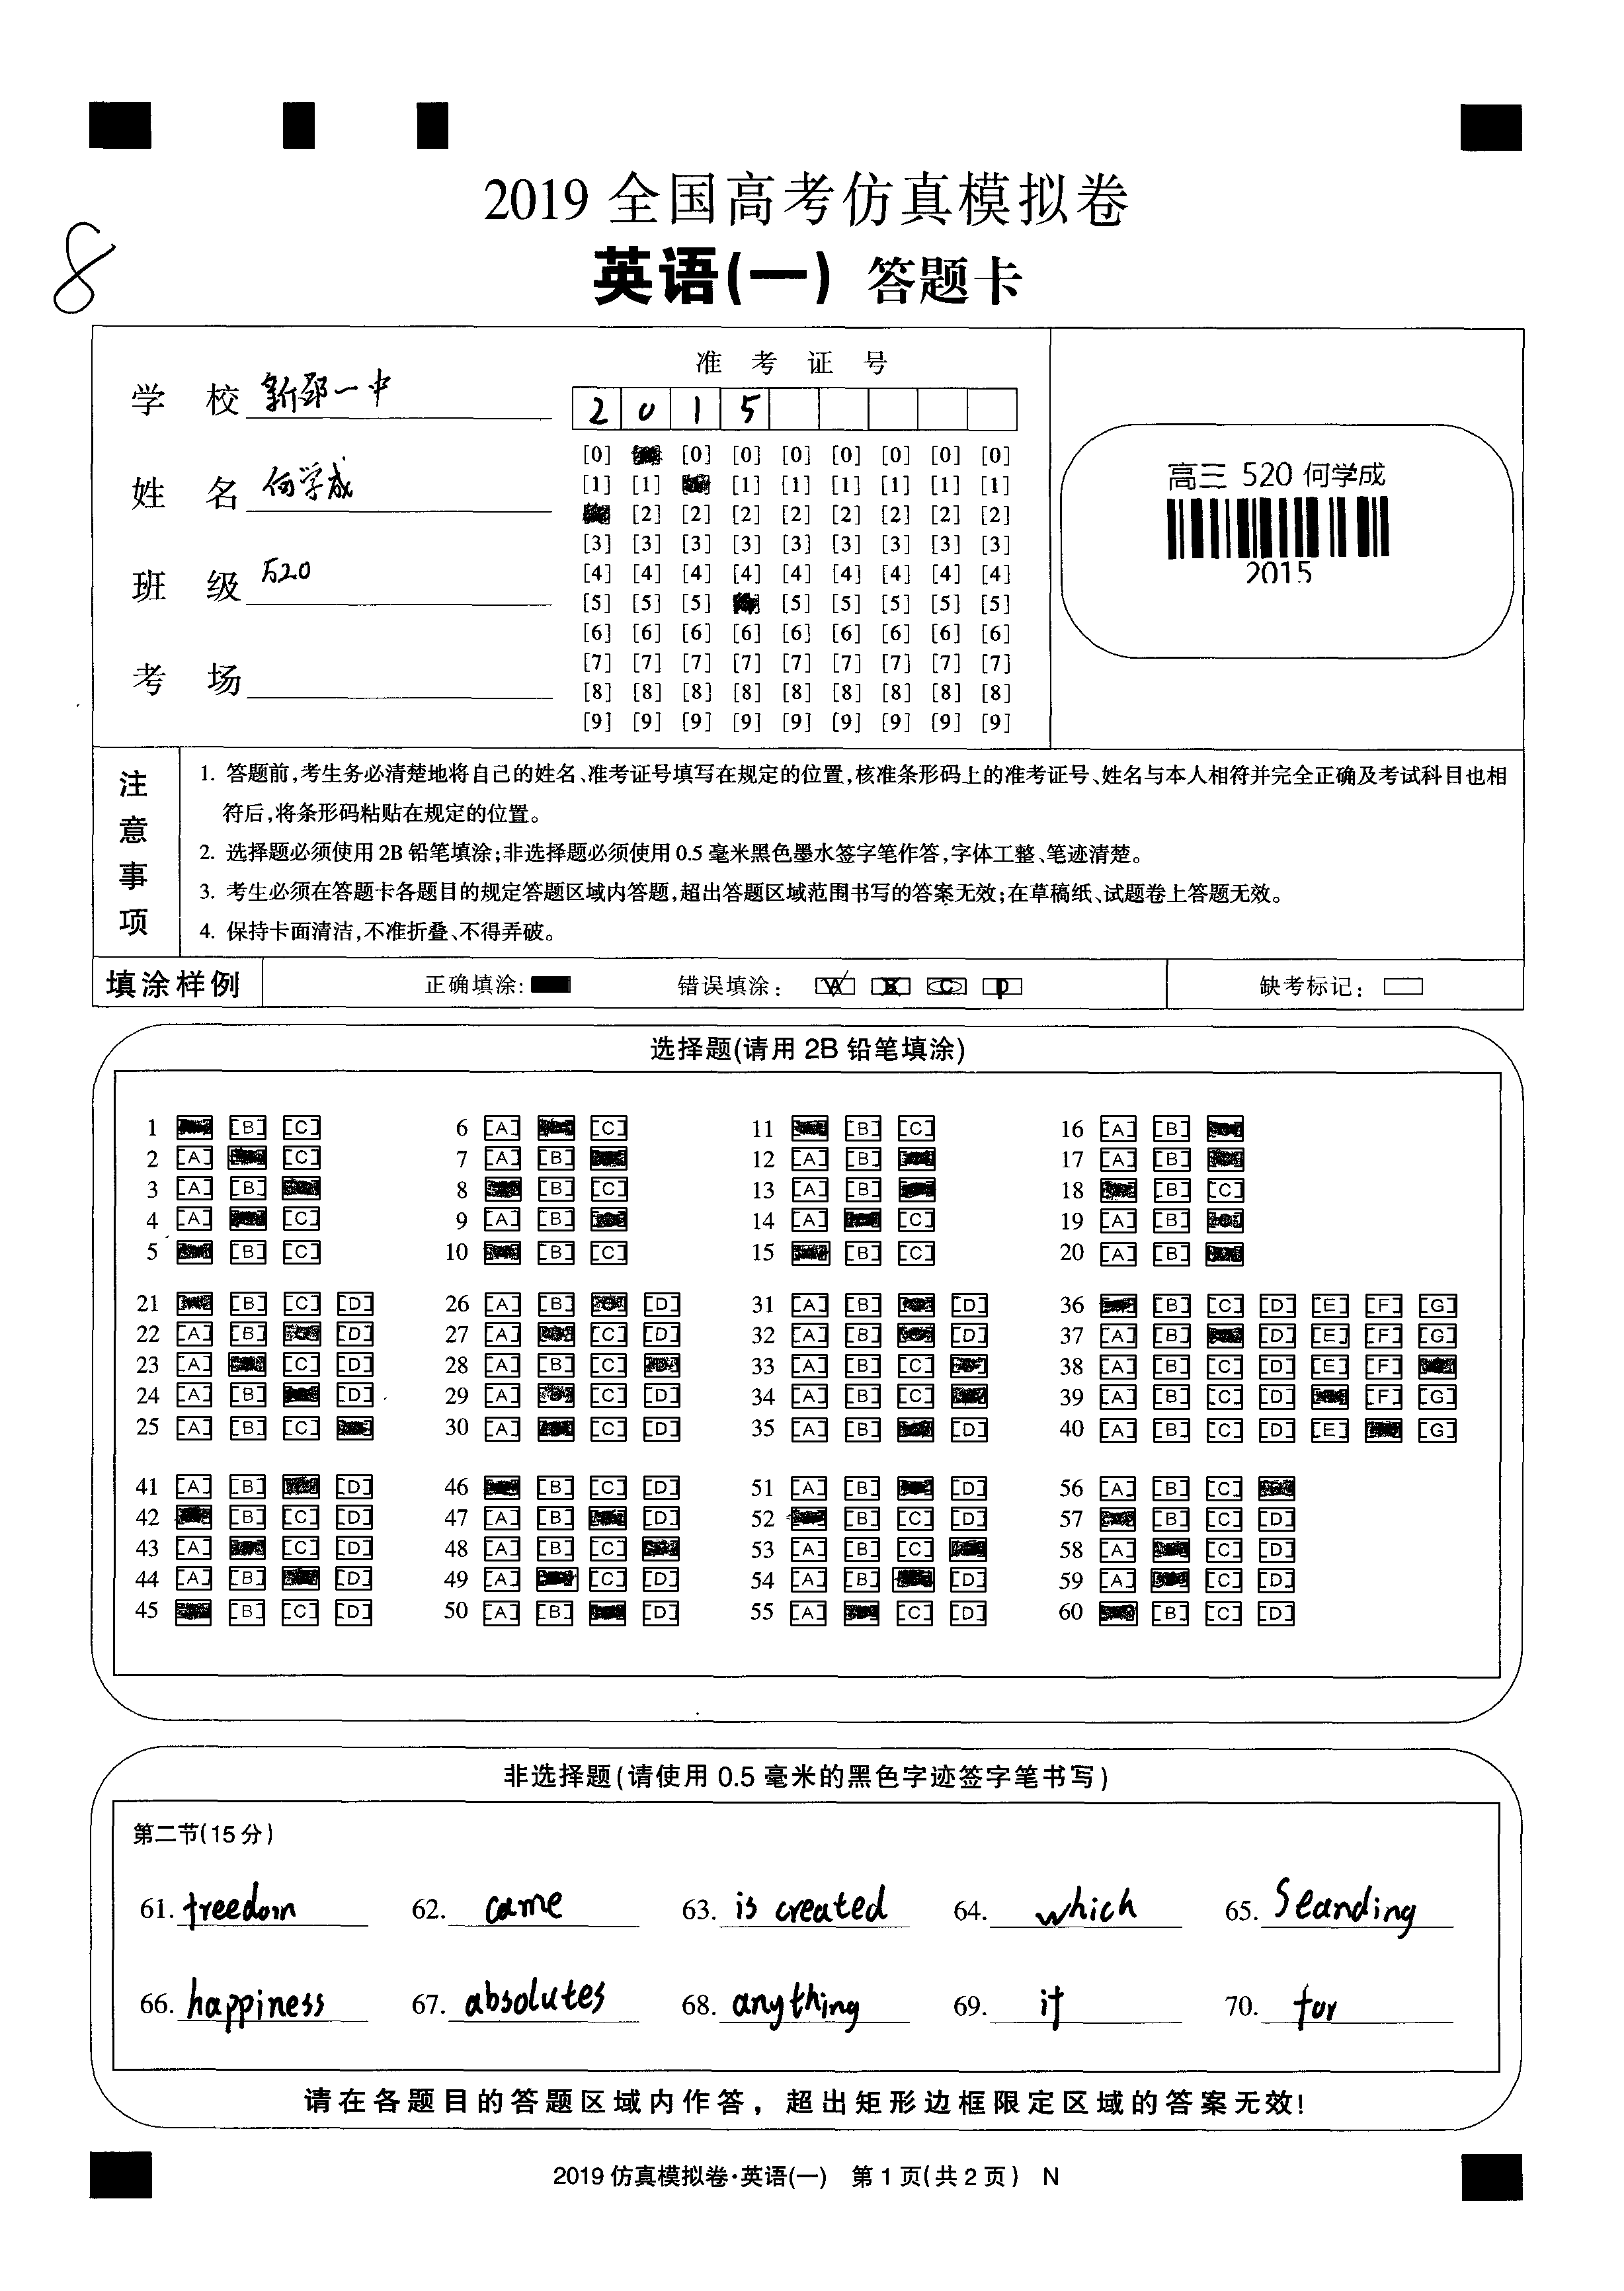 2019 全国高考仿真模拟卷
8
英语(一) 答题卡
学 校 新邵一中
姓 名 何学成
班 级 520
考 场
准 考 证 号
2 0 1 5
[0] [0] [0] [0] [0] [0] [0] [0]
[1] [1] [1] [1] [1] [1] [1] [1]
[2] [2] [2] [2] [2] [2] [2] [2]
[3] [3] [3] [3] [3] [3] [3] [3] [3]
[4] [4] [4] [4] [4] [4] [4] [4] [4]
[5] [5] [5] [5] [5] [5] [5] [5]
[6] [6] [6] [6] [6] [6] [6] [6] [6]
[7] [7] [7] [7] [7] [7] [7] [7] [7]
[8] [8] [8] [8] [8] [8] [8] [8] [8]
[9] [9] [9] [9] [9] [9] [9] [9] [9]
高三 520 何学成
2015
注意事项
1. 答题前,考生务必清楚地将自己的姓名、准考证号填写在规定的位置,核准条形码上的准考证号、姓名与本人相符并完全正确及考试科目也相
符后,将条形码粘贴在规定的位置。
2. 选择题必须使用 2B 铅笔填涂;非选择题必须使用 0.5 毫米黑色墨水签字笔作答,字体工整、笔迹清楚。
3. 考生必须在答题卡各题目的规定答题区域内答题,超出答题区域范围书写的答案无效;在草稿纸、试题卷上答题无效。
4. 保持卡面清洁,不准折叠、不得弄破。
填涂样例 正确填涂: 错误填涂: A B C D 缺考标记:
选择题(请用 2B 铅笔填涂)
1 [B] [C] 6 [A] [C] 11 [B] [C] 16 [A] [B]
2 [A] [C] 7 [A] [B] 12 [A] [B] 17 [A] [B]
3 [A] [B] 8 [B] [C] 13 [A] [B] 18 [B] [C]
4 [A] [C] 9 [A] [B] 14 [A] [C] 19 [A] [B]
5 [B] [C] 10 [B] [C] 15 [B] [C] 20 [A] [B]
21 [B] [C] [D] 26 [A] [B] [D] 31 [A] [B] [D] 36 [B] [C] [D] [E] [F] [G]
22 [A] [B] [D] 27 [A] [C] [D] 32 [A] [B] [D] 37 [A] [B] [D] [E] [F] [G]
23 [A] [C] [D] 28 [A] [B] [C] 33 [A] [B] [C] 38 [A] [B] [C] [D] [E] [F]
24 [A] [B] [D] 29 [A] [C] [D] 34 [A] [B] [C] 39 [A] [B] [C] [D] [F] [G]
25 [A] [B] [C] 30 [A] [C] [D] 35 [A] [B] [D] 40 [A] [B] [C] [D] [E] [G]
41 [A] [B] [D] 46 [B] [C] [D] 51 [A] [B] [D] 56 [A] [B] [C]
42 [B] [C] [D] 47 [A] [B] [D] 52 [B] [C] [D] 57 [B] [C] [D]
43 [A] [C] [D] 48 [A] [B] [C] 53 [A] [B] [C] 58 [A] [C] [D]
44 [A] [B] [D] 49 [A] [C] [D] 54 [A] [B] [D] 59 [A] [C] [D]
45 [B] [C] [D] 50 [A] [B] [D] 55 [A] [C] [D] 60 [B] [C] [D]
非选择题(请使用 0.5 毫米的黑色字迹签字笔书写)
第二节(15 分)
61. freedom 62. came 63. is created 64. which 65. Standing
66. happiness 67. absolutes 68. anything 69. it 70. for
请在各题目的答题区域内作答，超出矩形边框限定区域的答案无效!
2019 仿真模拟卷·英语(一) 第 1 页(共 2 页) N